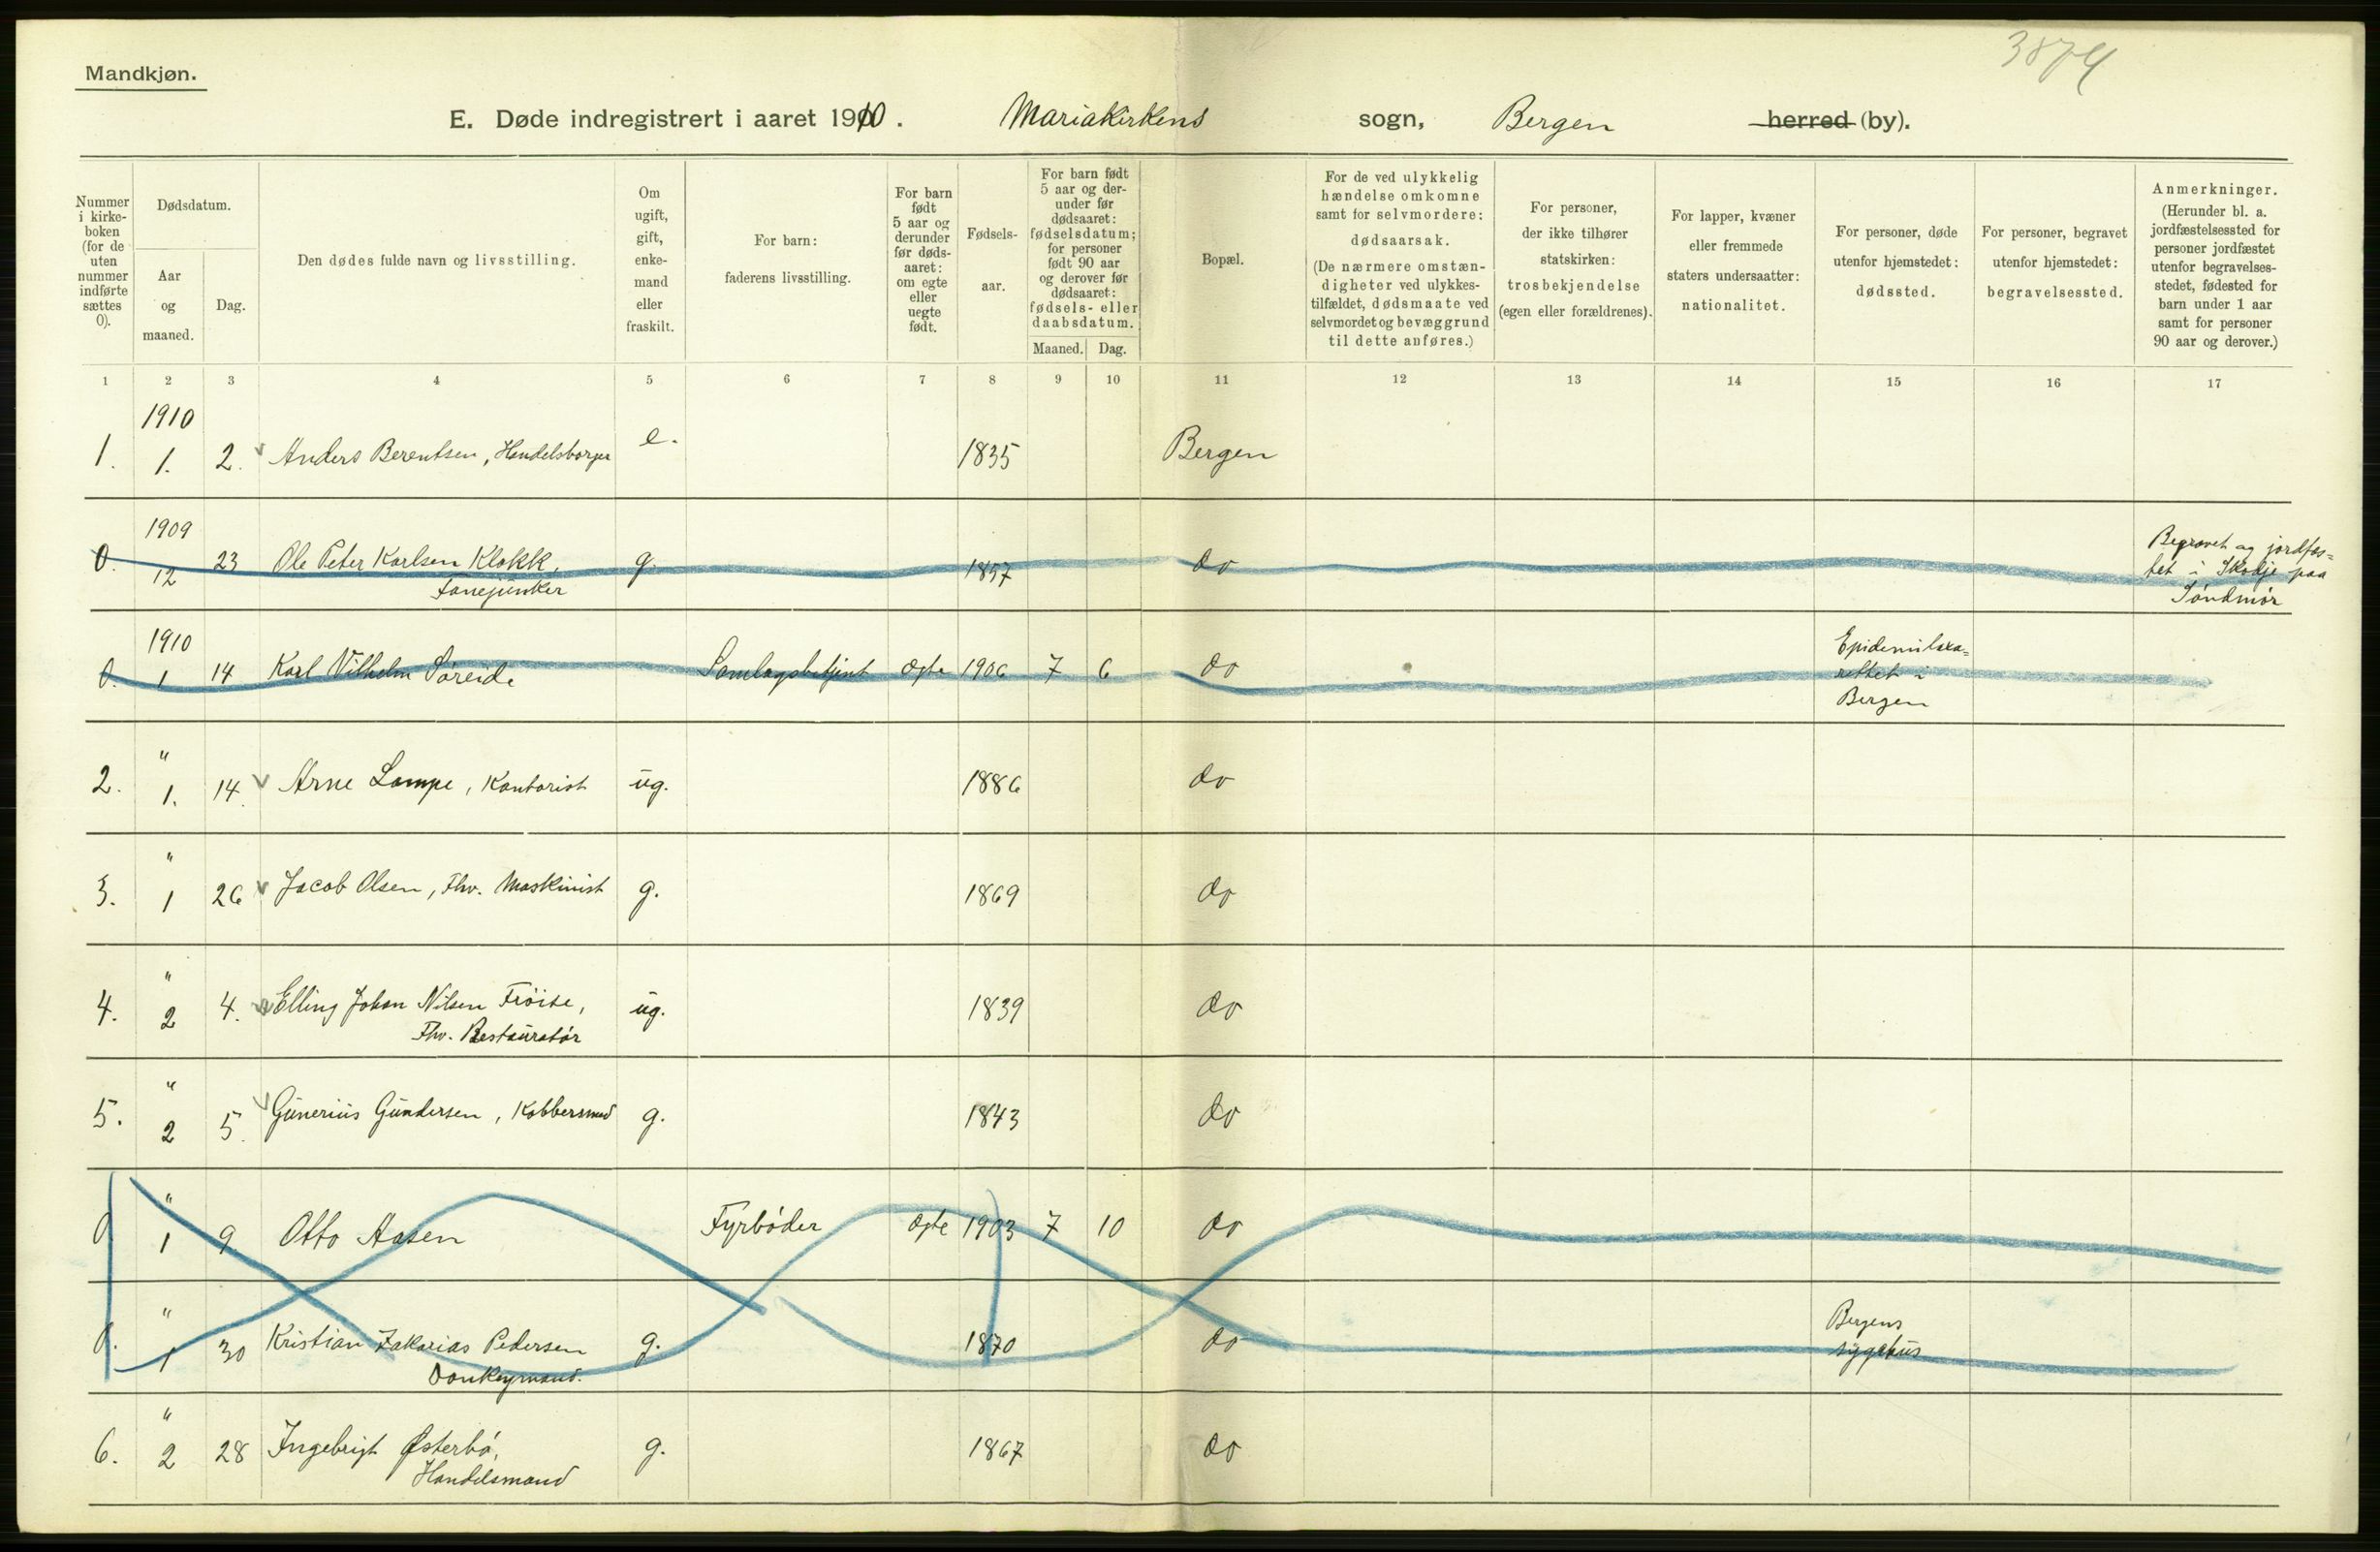 3874
Mandkjøn.
E. Døde indregistrert i aaret 1910. Mariakirkens sogn, Bergen herred (by).
Nummer i kirkeboken (for de uten nummer indførte sættes 0).
Dødsdatum.
Aar og maaned.
Dag.
Den dødes fulde navn og livsstilling.
Om ugift, gift, enkemand eller fraskilt.
For barn: faderens livsstilling.
For barn født 5 aar og derunder før dødsaaret: om egte eller uegte født.
Fødselsaar.
For barn født 5 aar og derunder før dødsaaret: fødselsdatum; for personer født 90 aar og derover før dødsaaret: fødsels- eller daabsdatum.
Maaned. Dag.
Bopæl.
For de ved ulykkelig hændelse omkomne samt for selvmordere: dødsaarsak. (De nærmere omstændigheter ved ulykkestilfældet, dødsmaate ved selvmordet og bevæggrund til dette anføres.)
For personer, der ikke tilhører statskirken: trosbekjendelse (egen eller forældrenes).
For lapper, kvæner eller fremmede staters undersaatter: nationalitet.
For personer, døde utenfor hjemstedet: dødssted.
For personer, begravet utenfor hjemstedet: begravelsessted.
Anmerkninger. (Herunder bl. a. jordfæstelsessted for personer jordfæstet utenfor begravelsesstedet, fødested for barn under 1 aar samt for personer 90 aar og derover.)
1 2 3 4 5 6 7 8 9 10 11 12 13 14 15 16 17
1910
1. 1. 2. Anders Berentsen, Handelsborger e. 1835 Bergen
1909
0. 12 23 Ole Peter Karlsen Klokk, g. 1857 do Begravet og jordfæs=
Fanejunker tet i Skodje paa
Søndmør
1910
0. 1 14 Karl Vilhelm Søreide Samlagsbetjent Ægte 1906 7 6 do Epidemilaza=
rettet i
Bergen
"
2. 1. 14. Arne Lampe, Kontorist ug. 1886 do
"
3. 1 26 Jacob Olsen, Fhv. Maskinist g. 1869 do
"
4. 2 4. Elling Johan Nilsen Frøise, ug. 1839 do
Fhv. Restauratør
"
5. 2 5. Gunerius Gundersen, Kobbersmed g. 1843 do
"
0 1 9 Otto Aasen Fyrbøder Ægte 1903 7 10 do
"
0. 1 30 Kristian Zakarias Pedersen g. 1870 do Bergens
Donkeymand. sygehus
"
6. 2 28 Ingebrigt Østerbø, g. 1867 do
Handelsmand